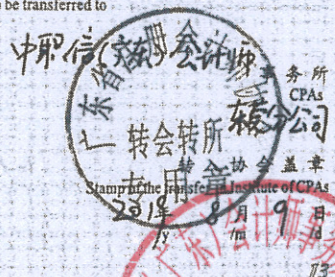 o be transferred to
中职信(广东)会计师
事务所
CPAs
东莞分公司
广东省注册会计师协会
转会转所
专用章
转入协会盖章
Stamp of the transfer-in Institute of CPAs
2019年 8月 9日
/y /m /d